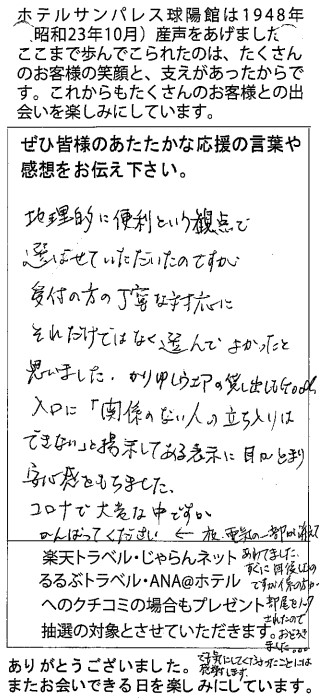 ホテルサンパレス球陽館は1948年
(昭和23年10月)産声をあげました
ここまで歩んでこられたのは、たくさん
のお客様の笑顔と、支えがあったからで
す。これからもたくさんのお客様との出
会いを楽しみにしています。
ぜひ皆様のあたたかな応援の言葉や
感想をお伝え下さい。
地理的に便利という観点で
選ばせていただいたのですが
受付の方の丁寧な対応に
それだけではなく選んでよかったと
思いました。かりゆしウェアの貸し出しもGood
入口に「関係のない人の立ち入りは
できない」と掲示してある表示に目がとまり
安心感をもちました。
コロナで大変な中ですが
がんばってください ← 電気の一部が消えて
楽天トラベル・じゃらんネット
るるぶトラベル・ANA@ホテル
へのクチコミの場合もプレゼント
抽選の対象とさせていただきます。
おりました。
すぐに
ですが係の方が
部屋を
されたので
おどろき
ました
気にしてくださったことには
感謝します。
ありがとうございました。
またお会いできる日を楽しみにしています。